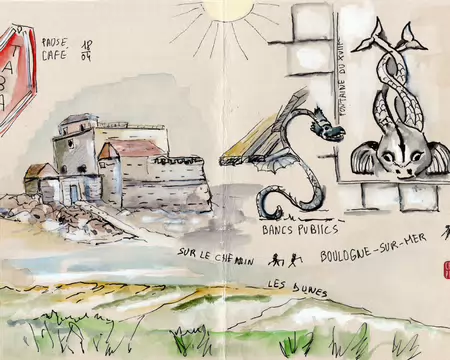 TABA
PAUSE 18
CAFÉ 04
FONTAINE DU XVIIIE
BANCS PUBLICS
SUR LE CHEMIN
BOULOGNE-SUR-MER
LES DUNES